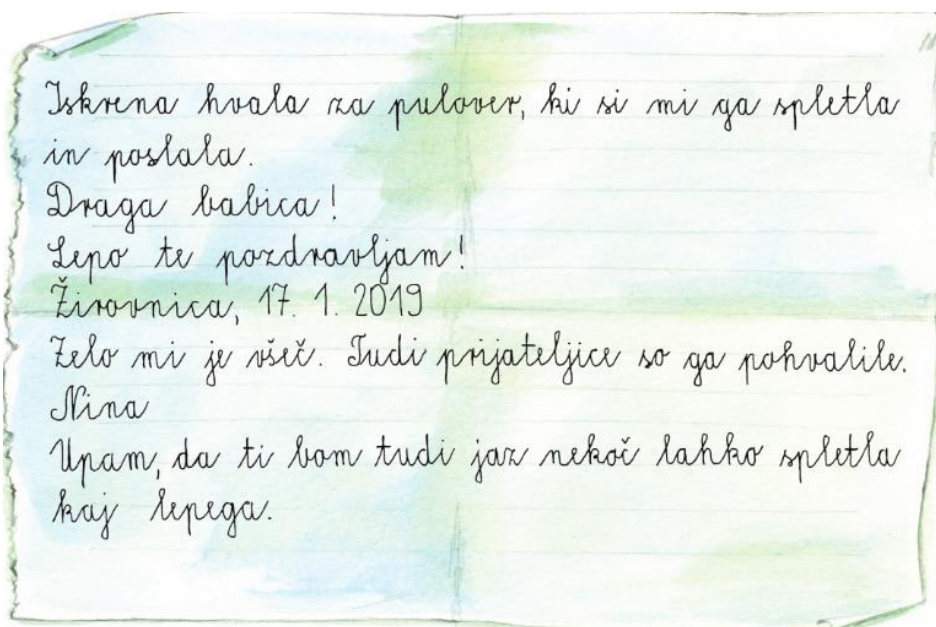 Iskrena hvala za pulover, ki si mi ga spletla
in poslala.
Draga babica!
Lepo te pozdravljam!
Žirovnica, 17. 1. 2019
Zelo mi je všeč. Tudi prijateljice so ga pohvalile.
Nina
Upam, da ti bom tudi jaz nekoč lahko spletla
kaj lepega.